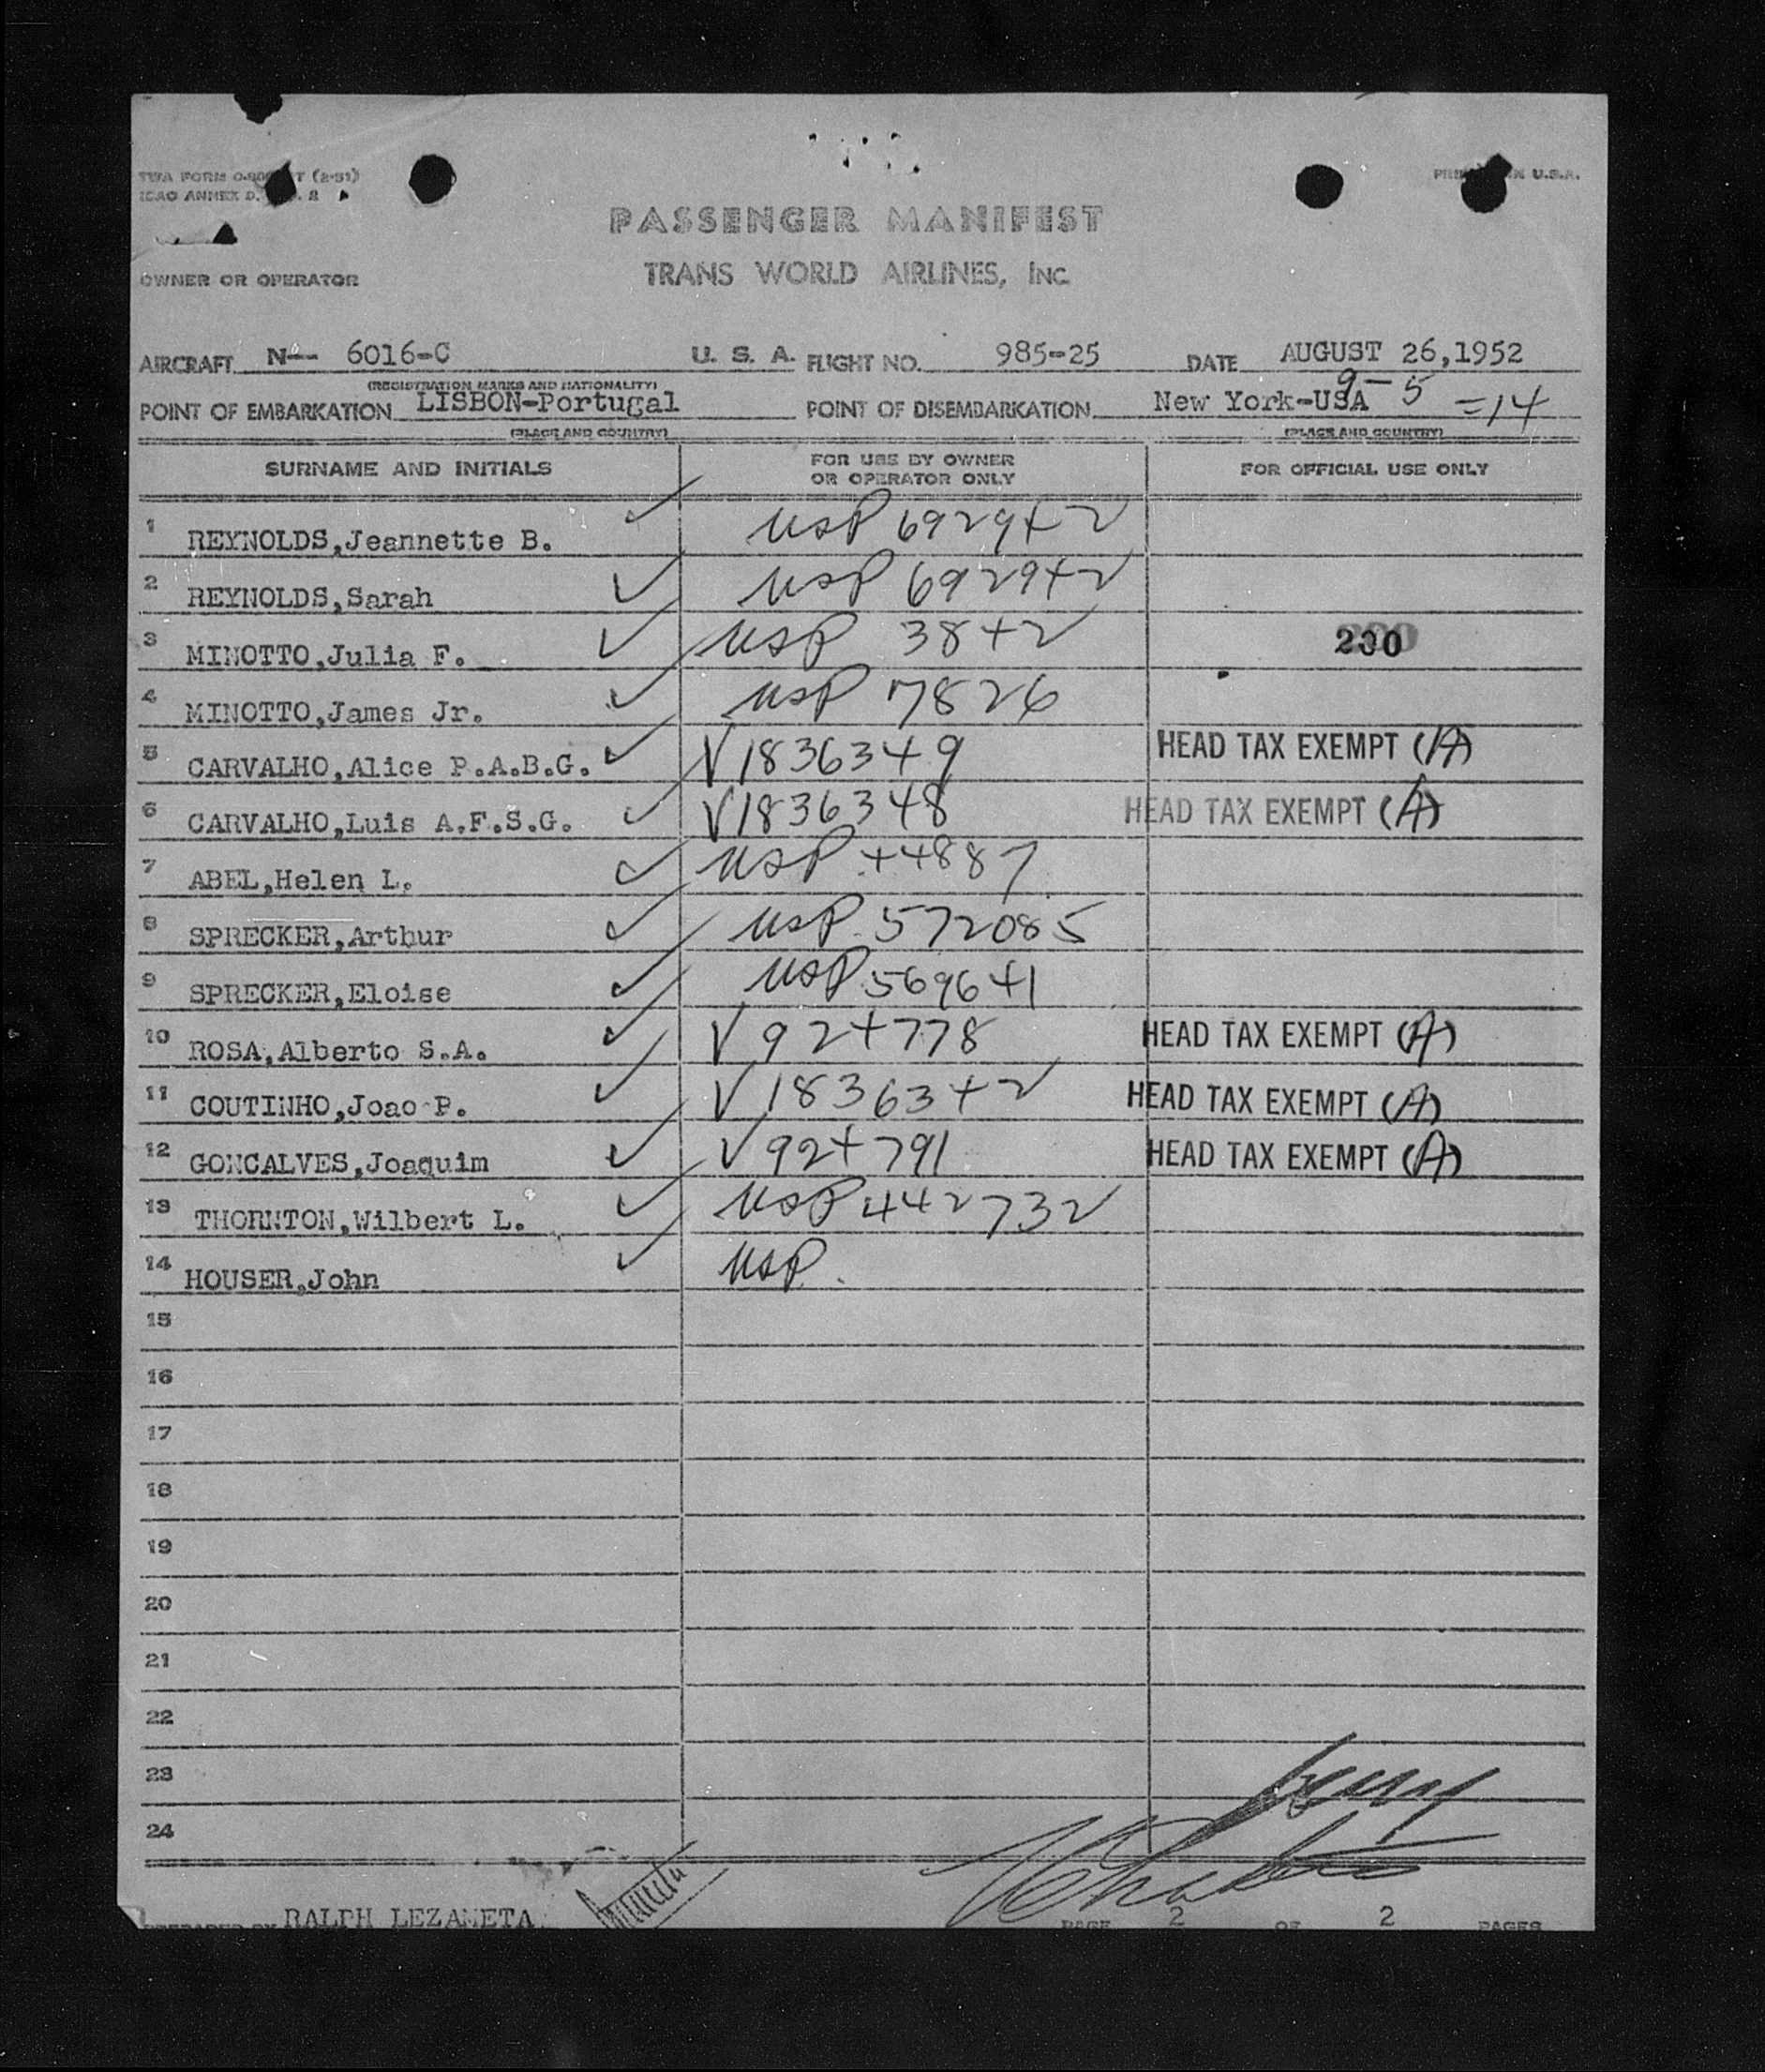 TWA FORM O-900 T (2-51) PRINTED IN U.S.A.
ICAO ANNEX D. 2
PASSENGER MANIFEST
OWNER OR OPERATOR TRANS WORLD AIRLINES, INC
AIRCRAFT N-- 6016-C U. S. A. FLIGHT NO. 985-25 DATE AUGUST 26,1952
(REGISTRATION MARKS AND NATIONALITY)
POINT OF EMBARKATION LISBON-Portugal POINT OF DISEMBARKATION New York-USA 9-5 =14
(PLACE AND COUNTRY) (PLACE AND COUNTRY)
SURNAME AND INITIALS FOR USE BY OWNER OR OPERATOR ONLY FOR OFFICIAL USE ONLY
1 REYNOLDS,Jeannette B. ✓ USP 692942
2 REYNOLDS,Sarah ✓ USP 692942
3 MINOTTO,Julia F. ✓ USP 3842 200
4 MINOTTO,James Jr. ✓ USP 7826
5 CARVALHO,Alice P.A.B.G. ✓ V1836349 HEAD TAX EXEMPT (A)
6 CARVALHO,Luis A.F.S.G. ✓ V1836348 HEAD TAX EXEMPT (A)
7 ABEL,Helen L. ✓ USP 44887
8 SPRECKER,Arthur ✓ USP 572085
9 SPRECKER,Eloise ✓ USP 569641
10 ROSA,Alberto S.A. ✓ V924778 HEAD TAX EXEMPT (A)
11 COUTINHO,Joao P. ✓ V1836342 HEAD TAX EXEMPT (A)
12 GONCALVES,Joaquim ✓ V924791 HEAD TAX EXEMPT (A)
13 THORNTON,Wilbert L. ✓ USP 442732
14 HOUSER,John ✓ USP.
15
16
17
18
19
20
21
22
23
24
PREPARED BY RALPH LEZAMETA PAGE 2 OF 2 PAGES